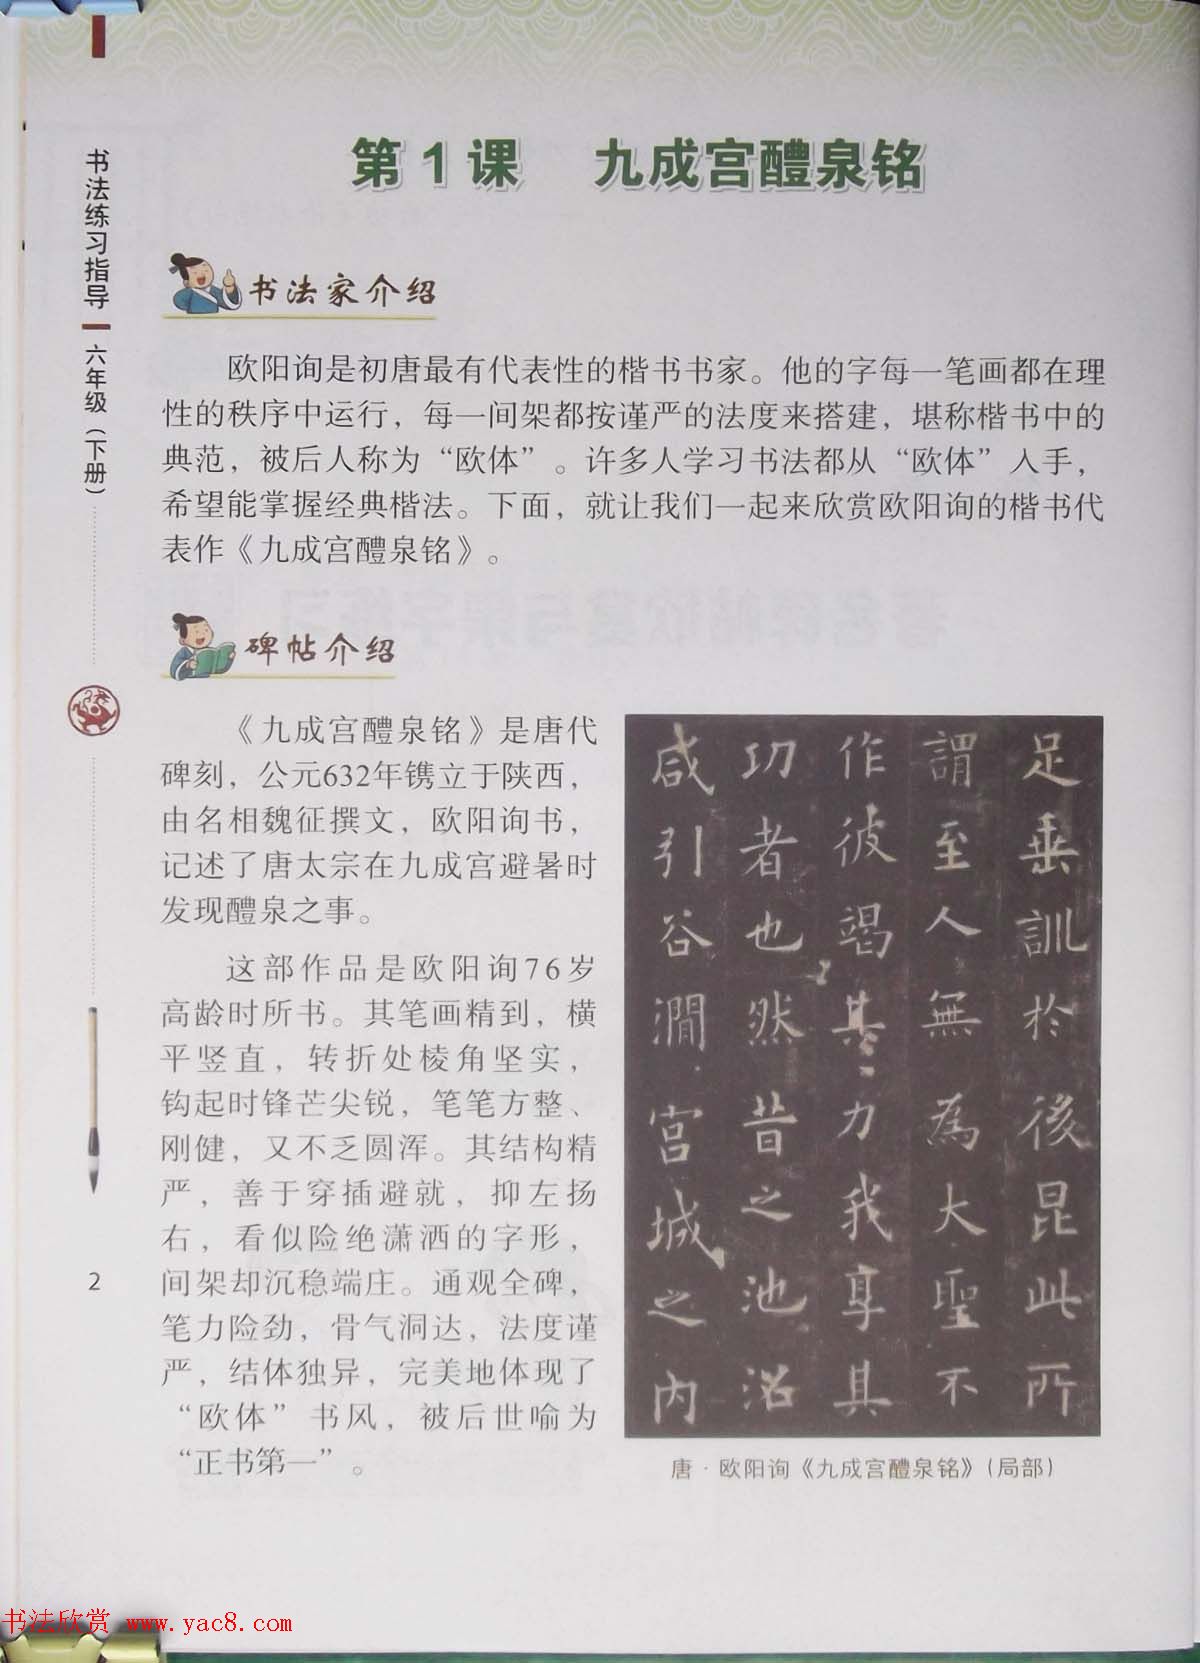 书法练习指导
六年级（下册）
第1课 九成宫醴泉铭
书法家介绍
欧阳询是初唐最有代表性的楷书书家。他的字每一笔画都在理
性的秩序中运行，每一间架都按谨严的法度来搭建，堪称楷书中的
典范，被后人称为“欧体”。许多人学习书法都从“欧体”入手，
希望能掌握经典楷法。下面，就让我们一起来欣赏欧阳询的楷书代
表作《九成宫醴泉铭》。
碑帖介绍
《九成宫醴泉铭》是唐代
碑刻，公元632年镌立于陕西，
由名相魏征撰文，欧阳询书，
记述了唐太宗在九成宫避暑时
发现醴泉之事。
这部作品是欧阳询76岁
高龄时所书。其笔画精到，横
平竖直，转折处棱角坚实，
钩起时锋芒尖锐，笔笔方整、
刚健，又不乏圆浑。其结构精
严，善于穿插避就，抑左扬
右，看似险绝潇洒的字形，
间架却沉稳端庄。通观全碑，
笔力险劲，骨气洞达，法度谨
严，结体独异，完美地体现了
“欧体”书风，被后世喻为
“正书第一”。
足垂訓於後昆此所
謂至人無為大聖不
作彼竭其力我享其
功者也然昔之池沼
咸引谷澗宮城之內
唐·欧阳询《九成宫醴泉铭》（局部）
2
书法欣赏 www.yac8.com